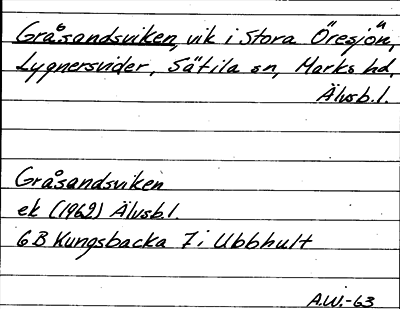 Gråsandsviken, vik i Stora Öresjön,
Lygnersvider, Sätila sn, Marks hd,
Älvsb.l.
Gråsandsviken
ek (1962) Älvsb.l.
6B Kungsbacka 7i Ubbhult
A.W.-63